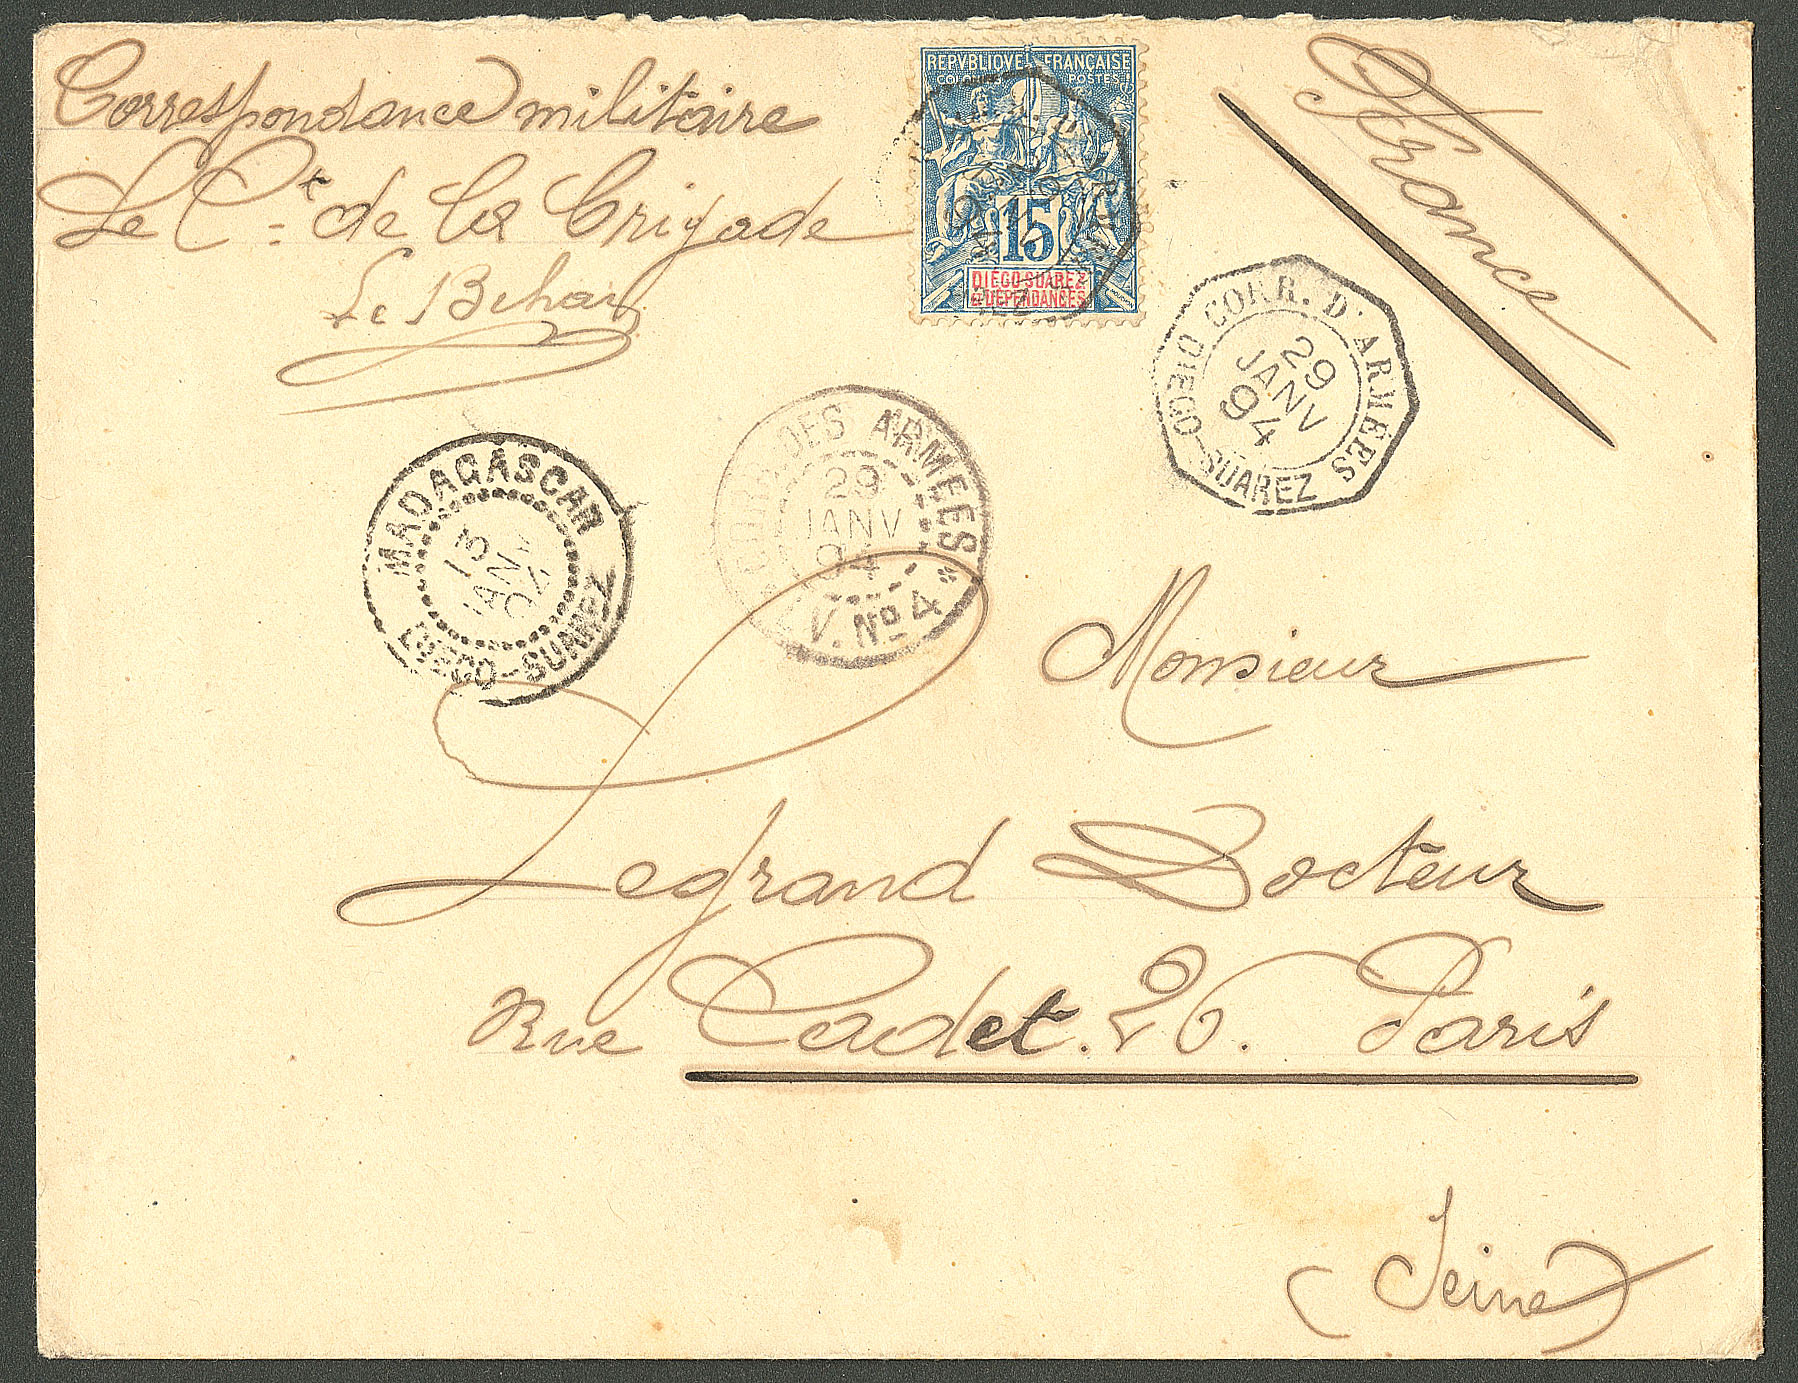 Correspondance militaire
Le Ct de la brigade
Le Bihan
REPVBLIQVE FRANÇAISE
COLONIES POSTES
15
DIÉGO-SUAREZ
& DÉPENDANCES
France
CORR. D'ARMÉES
29
JANV
94
DIEGO-SUAREZ
CORR. DES ARMEES
29
JANV
94
LIGNE V. No 4
MADAGASCAR
13
JANV
94
DIEGO-SUAREZ
Monsieur
Legrand Docteur
Rue Cadet. 26. Paris
(Seine)